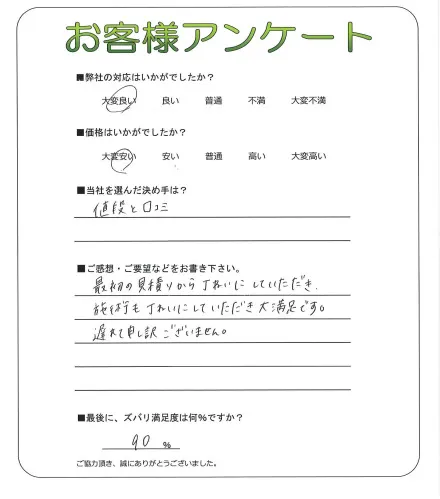 お客様アンケート
■弊社の対応はいかがでしたか?
大変良い 良い 普通 不満 大変不満
■価格はいかがでしたか?
大変安い 安い 普通 高い 大変高い
■当社を選んだ決め手は?
値段と口コミ
■ご感想・ご要望などをお書き下さい。
最初の見積りから丁ねいにしていただき、
施術も丁ねいにしていただき大満足です。
遅れて申し訳ございません。
■最後に、ズバリ満足度は何%ですか?
90 %
ご協力頂き、誠にありがとうございました。